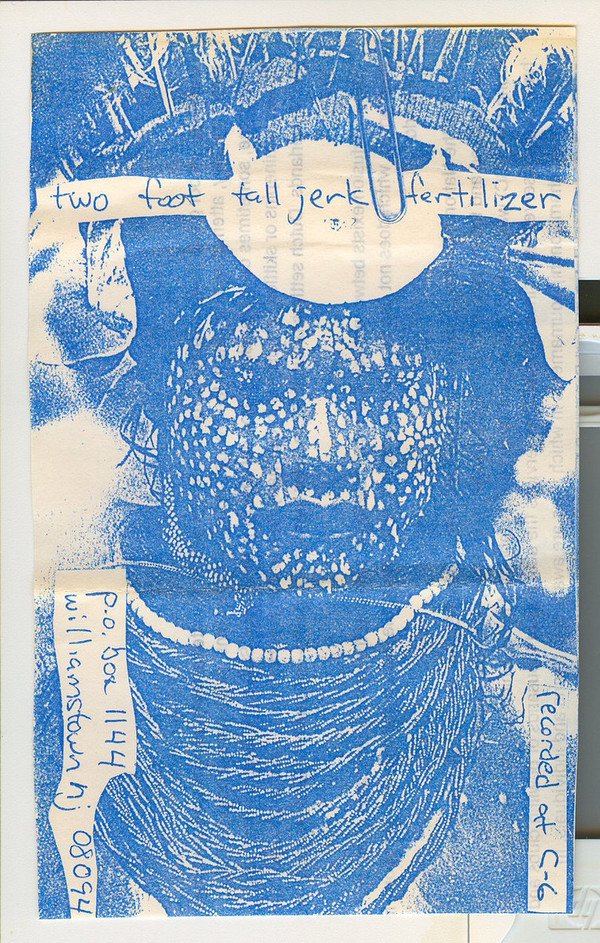 two foot tall jerk fertilizer
p.o. box 1144
williamstown nj 08094
recorded at C-6